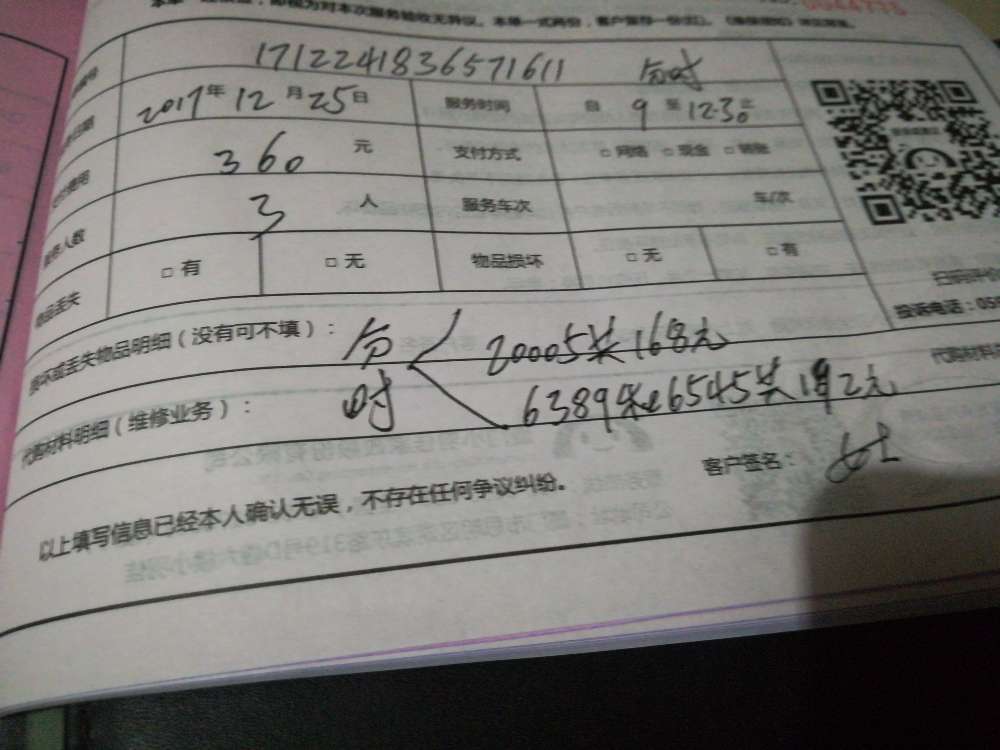 对本次服务验收无异议。本单一式两份，客户留存一份
1712241836571611 分时
2017年12月25日 服务时间 自 9 至 12.30 止
360 元 支付方式 □ 网络 □ 现金 □ 转账
服务人数 3 人 服务车次 车/次
物品丢失 □ 有 □ 无 物品损坏 □ 无 □ 有
扫码评价
投诉电话：059
损坏或丢失物品明细（没有可不填）：
分时 20005共168元
代购材料
代购材料明细（维修业务）：
6389 6545共192元
以上填写信息已经本人确认无误，不存在任何争议纠纷。 客户签名：